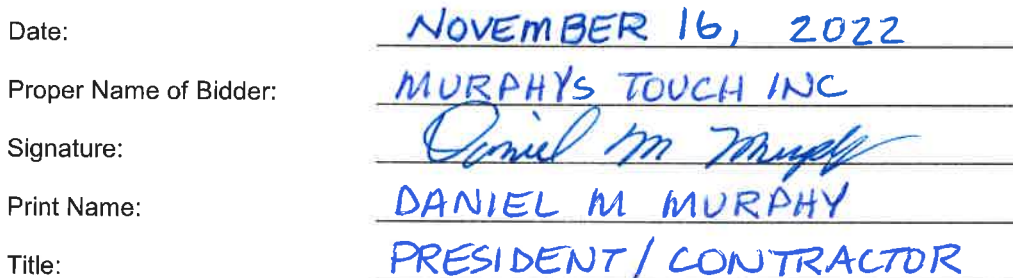 Date: NOVEMBER 16, 2022
Proper Name of Bidder: MURPHYS TOUCH INC
Signature: Daniel M Murphy
Print Name: DANIEL M MURPHY
Title: PRESIDENT / CONTRACTOR